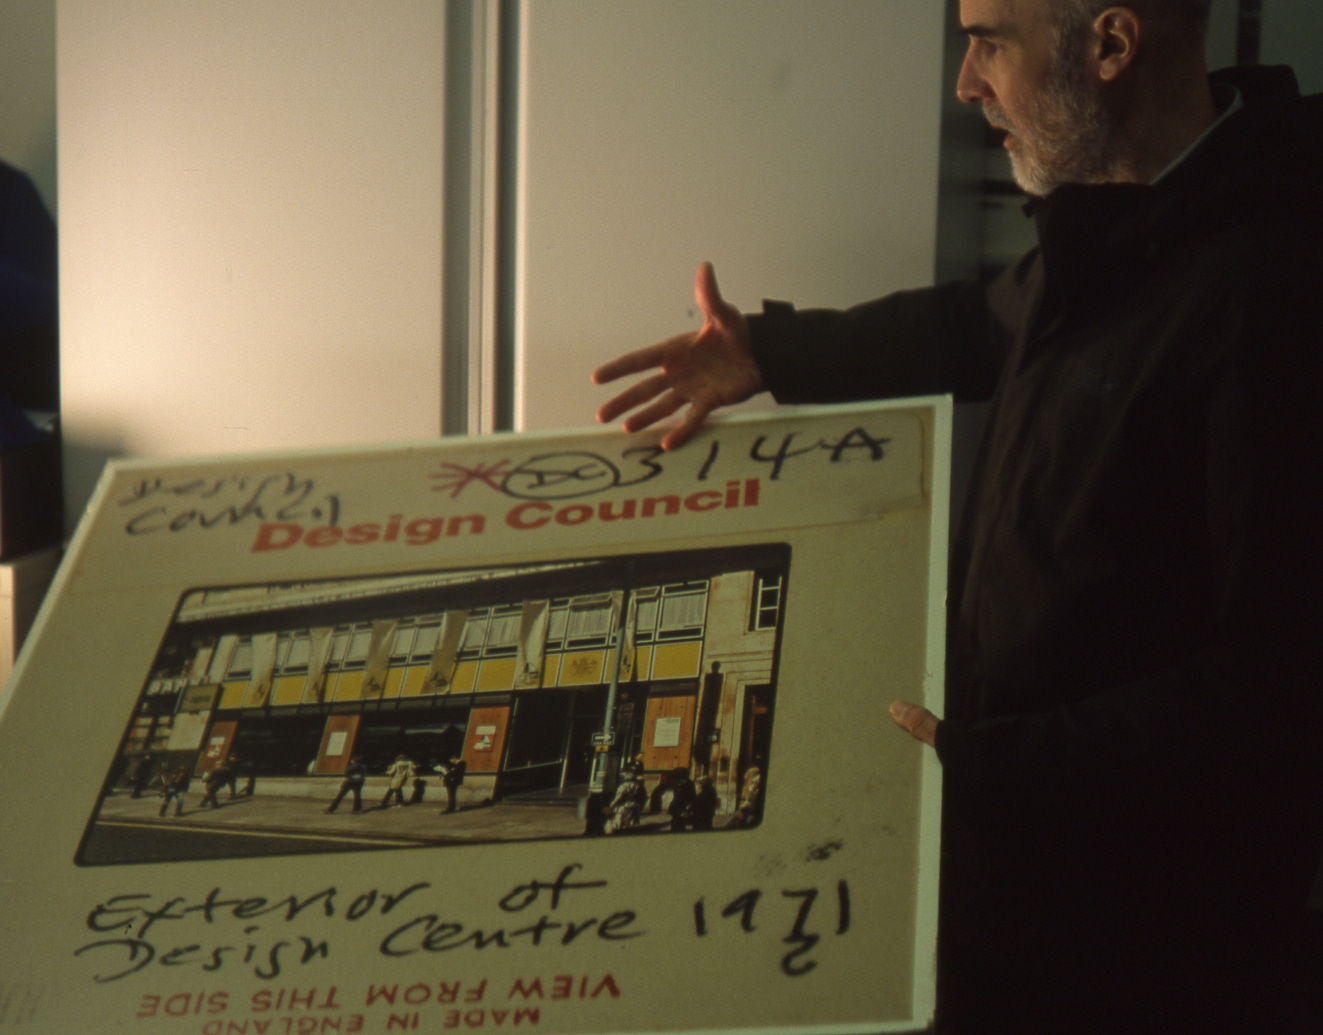 Design
Council
DC 314A
Design Council
Exterior of
Design Centre 1971
2
VIEW FROM THIS SIDE
MADE IN ENGLAND